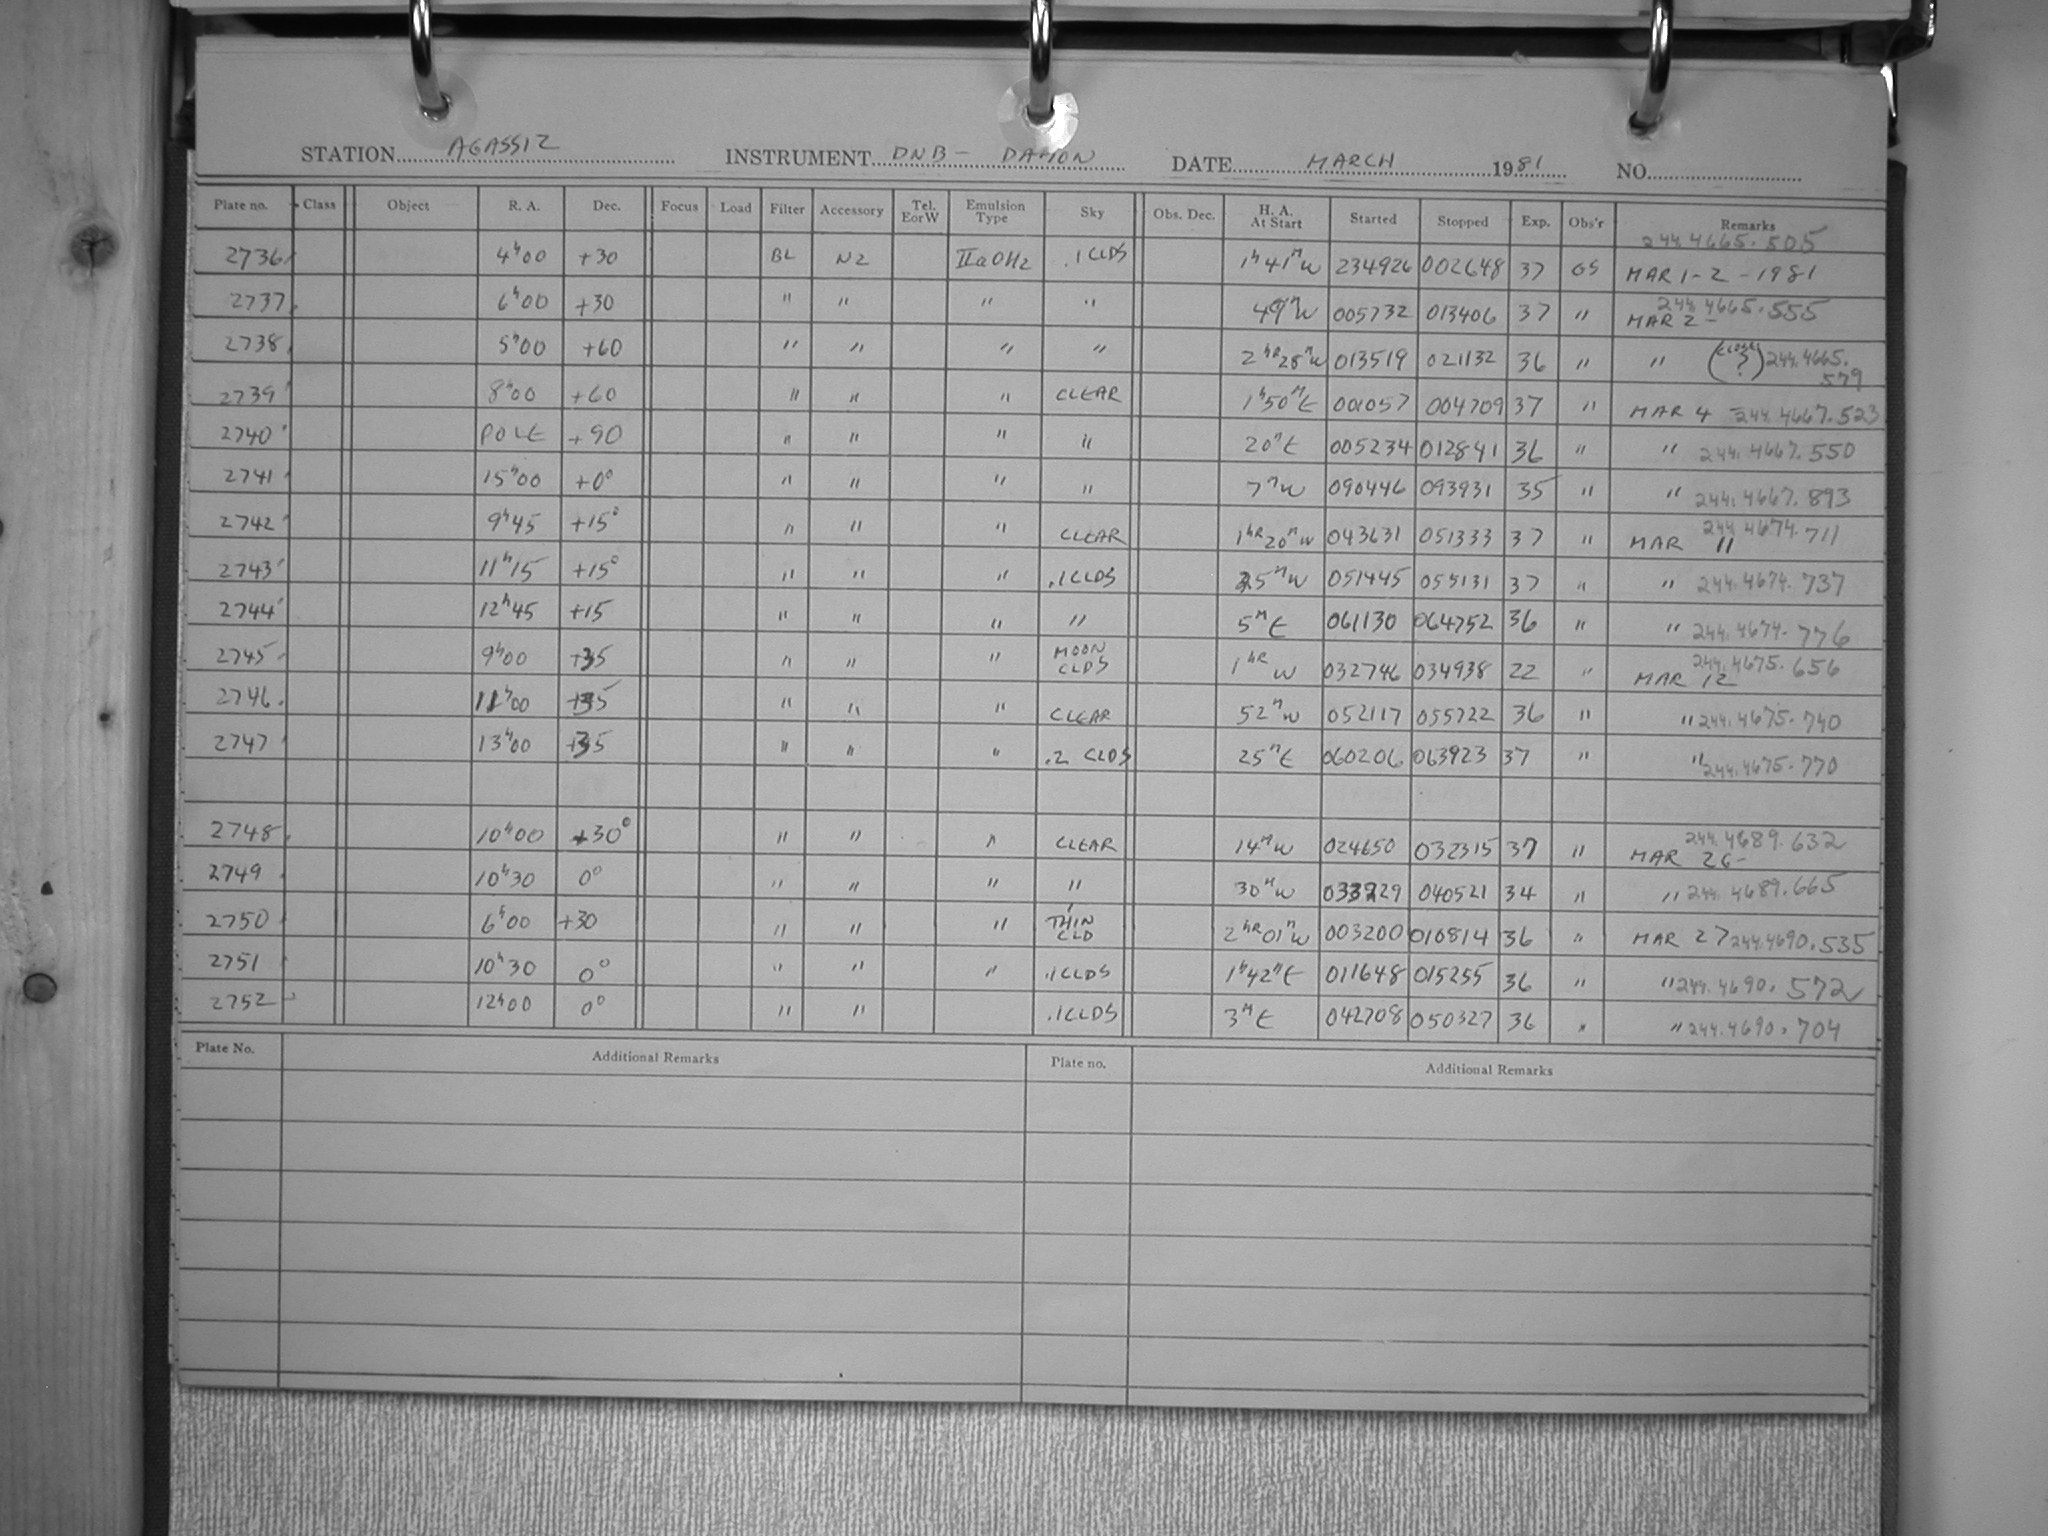 STATION AGASSIZ INSTRUMENT DNB - DAMON DATE MARCH 1981 NO.
Plate no. Class Object R. A. Dec. Focus Load Filter Accessory Tel. EorW Emulsion Type Sky Obs. Dec. H. A. At Start Started Stopped Exp. Obs'r Remarks
2736 4h00 +30 BL N2 IIaOH2 .1 CLDS 1h41mW 234926 002648 37 GS 244.4665.505 MAR 1-2-1981
2737 6h00 +30 " " " " 49mW 005732 013406 37 " 244.4665.555 MAR 2-
2738 5h00 +60 " " " " 2hR28mW 013519 021132 36 " " (?) 244.4665.579
2739 8h00 +60 " " " CLEAR 1h50mE 001057 004709 37 " MAR 4 - 244.4667.523
2740 POLE +90 " " " " 20mE 005234 012841 36 " " 244.4667.550
2741 15h00 +0° " " " " 7mW 090446 093931 35 " " 244.4667.893
2742 9h45 +15° " " " CLEAR 1hR20mW 043631 051333 37 " MAR 11 244.4674.711
2743 11h15 +15° " " " .1 CLDS 25mW 051445 055131 37 " " 244.4674.737
2744 12h45 +15 " " " " 5mE 061130 064752 36 " " 244.4674.776
2745 9h00 +35 " " " MOON CLDS 1hR W 032746 034938 22 " MAR 12 244.4675.656
2746 11h00 +35 " " " CLEAR 52mW 052117 055722 36 " " 244.4675.740
2747 13h00 +35 " " " .2 CLDS 25mE 060206 063923 37 " " 244.4675.770
2748 10h00 +30° " " " CLEAR 14mW 024650 032315 37 " MAR 26- 244.4689.632
2749 10h30 0° " " " " 30mW 033229 040521 34 " " 244.4689.665
2750 6h00 +30 " " " THIN CLD 2hR01mW 003200 010814 36 " MAR 27 244.4690.535
2751 10h30 0° " " " .1 CLDS 1h42mE 011648 015255 36 " " 244.4690.572
2752 12h00 0° " " .1 CLDS 3mE 042708 050327 36 " " 244.4690.704
Plate No. Additional Remarks Plate no. Additional Remarks